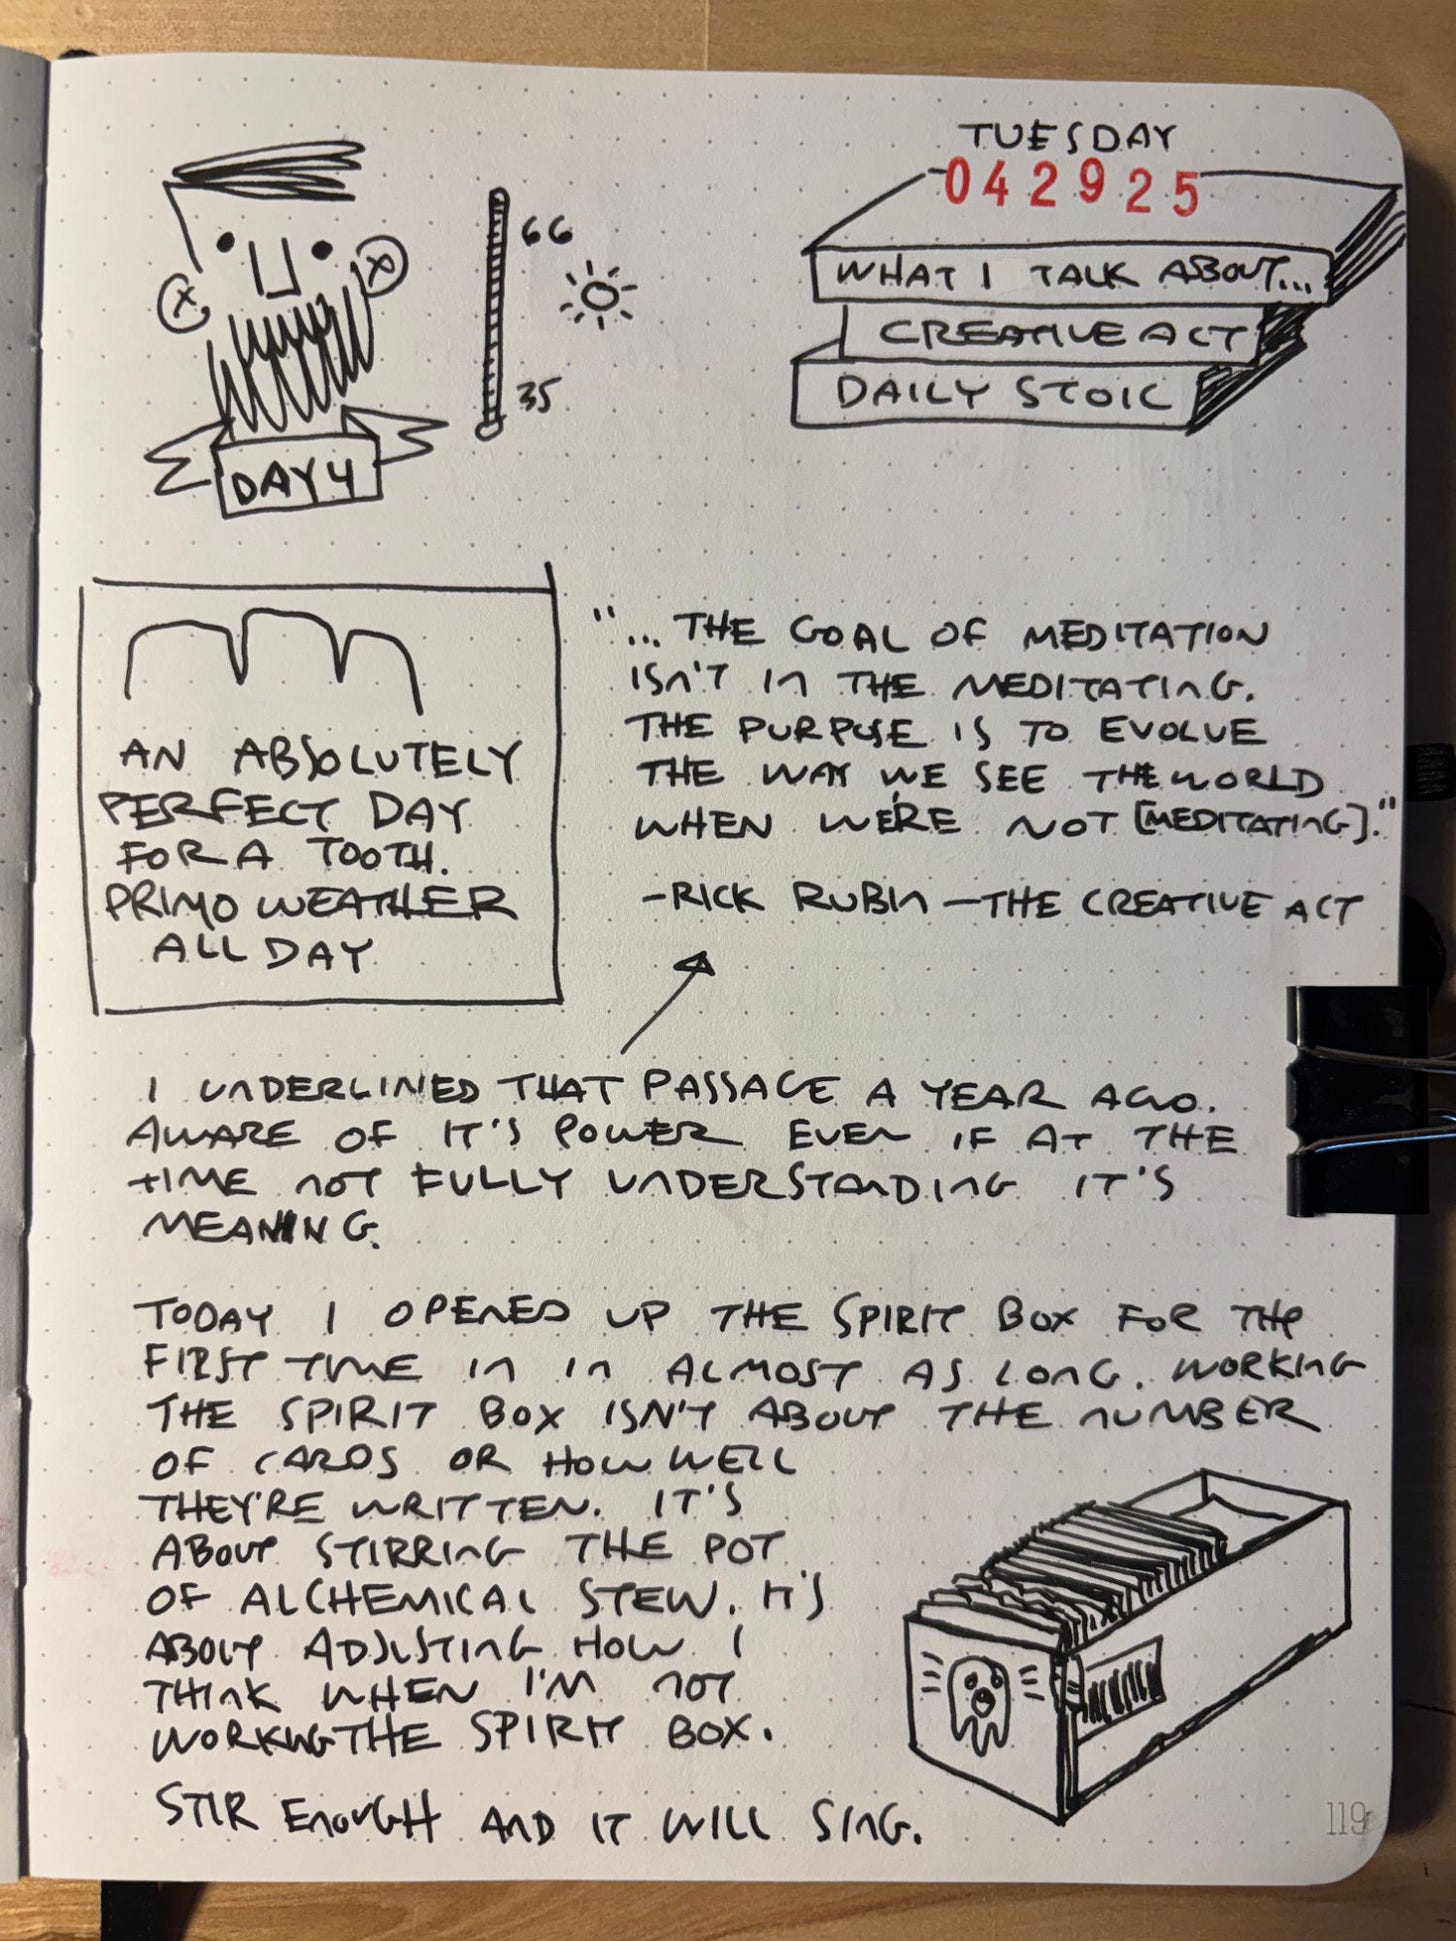 TUESDAY
042925
WHAT I TALK ABOUT...
CREATIVE ACT
DAILY STOIC
66
35
X
X
DAY 4
AN ABSOLUTELY
PERFECT DAY
FOR A TOOTH.
PRIMO WEATHER
ALL DAY
"... THE GOAL OF MEDITATION
ISN'T IN THE MEDITATING.
THE PURPOSE IS TO EVOLVE
THE WAY WE SEE THE WORLD
WHEN WE'RE NOT [MEDITATING]."
-RICK RUBIN -THE CREATIVE ACT
I UNDERLINED THAT PASSAGE A YEAR AGO.
AWARE OF IT'S POWER EVEN IF AT THE
TIME NOT FULLY UNDERSTANDING IT'S
MEANING.
TODAY I OPENED UP THE SPIRIT BOX FOR THE
FIRST TIME IN IN ALMOST AS LONG. WORKING
THE SPIRIT BOX ISN'T ABOUT THE NUMBER
OF CARDS OR HOW WELL
THEY'RE WRITTEN. IT'S
ABOUT STIRRING THE POT
OF ALCHEMICAL STEW. IT'S
ABOUT ADJUSTING HOW I
THINK WHEN I'M NOT
WORKING THE SPIRIT BOX.
STIR ENOUGH AND IT WILL SING.
119